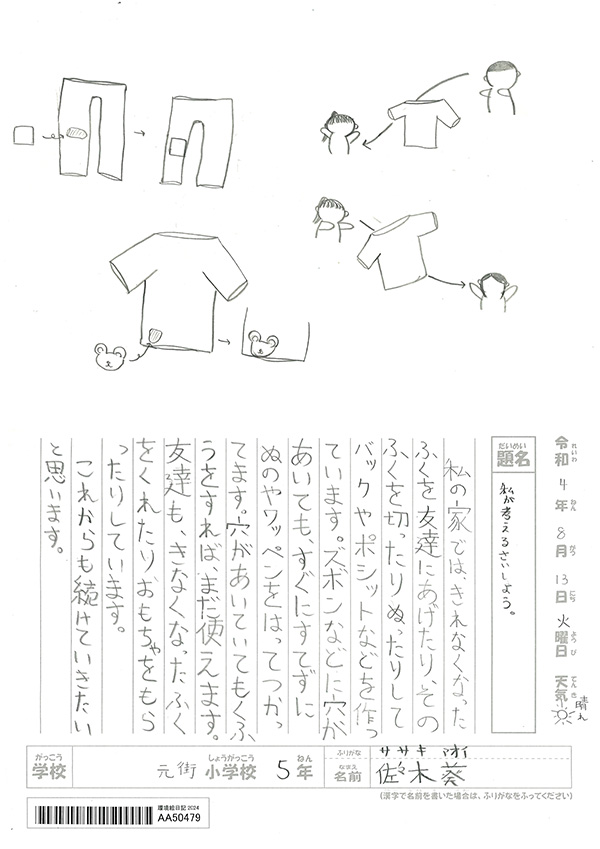 令和4年8月13日火曜日 天気 晴れ
れいわ ねん がつ にち ようび てんき
だいめい
題名 私が考えるさいしよう。
私の家では、きれなくなった
ふくを友達にあげたり、その
ふくを切ったりぬったりして
バックやポシットなどを作っ
ています。ズボンなどに穴が
あいても、すぐにすてずに
ぬのやワッペンをはってつかっ
てます。穴があいていてもくふ
うをすれば、まだ使えます。
友達も、きなくなったふく
をくれたりおもちゃをもら
ったりしています。
これからも続けていきたい
と思います。
がっこう しょうがっこう ねん
学校 元街小学校5年
ふりがな ササキ アオイ
なまえ
名前 佐々木葵
(漢字で名前を書いた場合は、ふりがなをふってください)
環境絵日記2024
AA50479